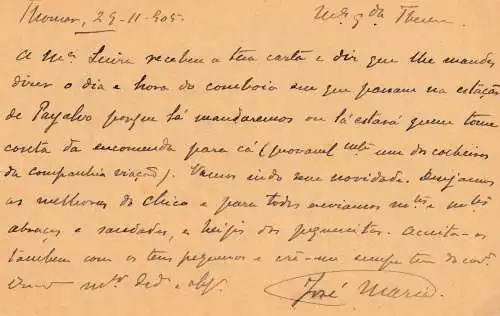 Thomar, 29-11-905. M.ª q.da Thereza
A M.ª Luiza recebeu a tua carta e diz que lhe mandes
dizer o dia e hora do comboio em que passam na estação
de Payalvo porque lá mandaremos ou lá estará quem tome
conta da encomenda para cá (provavel.mte um dos cocheiros
da companhia viação). Vamos indo sem novidade. Desejamos
as melhoras do Chico e para todos enviamos m.tos e m.tos
abraços e saudades, e beijos dos pequenitos. Aceita-os
tambem com os teus pequenos e crê-me sempre teu do cor.
m.to ded.º e obg.º José Maria